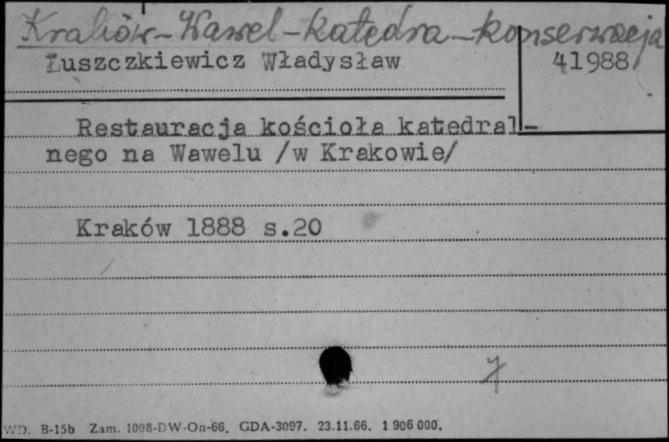 Kraków-Wawel-katedra-konserwacja
Łuszczkiewicz Władysław
41988
Restauracja kościoła katedral-
nego na Wawelu /w Krakowie/
Kraków 1888 s.20
WD. B-15b Zam. 1008-DW-On-66. GDA-3097. 23.11.66. 1 906 000.